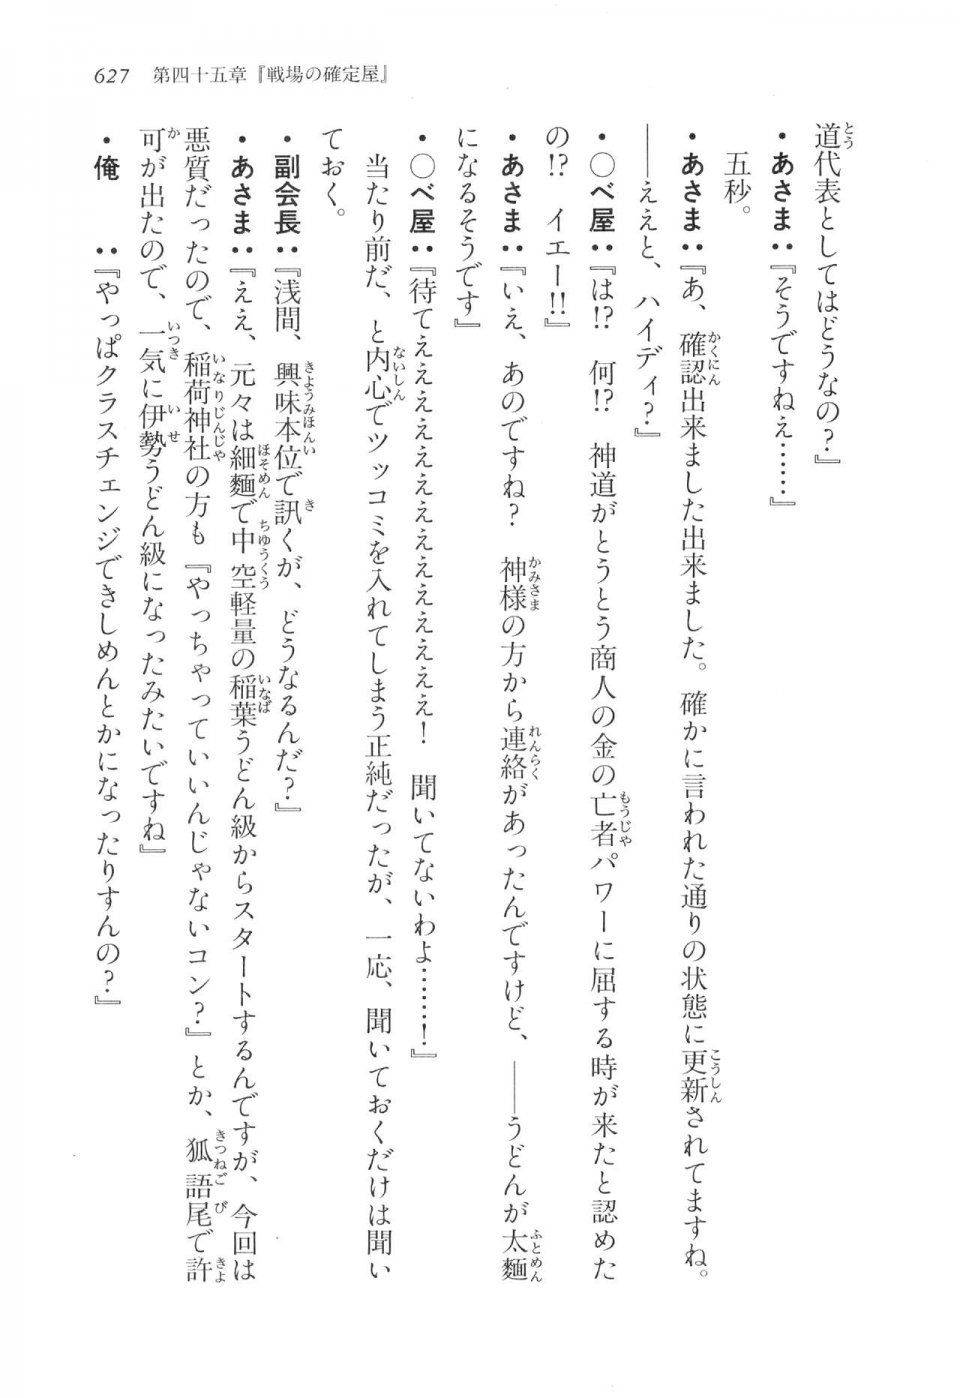 627　第四十五章『戦場の確定屋』
道代表としてはどうなの？』
・あさま：『そうですねえ……』
五秒。
・あさま：『あ、確認出来ました出来ました。確かに言われた通りの状態に更新されてますね。
――ええと、ハイディ？』
・○べ屋：『は!?　何!?　神道がとうとう商人の金の亡者パワーに屈する時が来たと認めた
の!?　イエー!!』
・あさま：『いえ、あのですね？　神様の方から連絡があったんですけど、――うどんが太麺
になるそうです』
・○べ屋：『待てえええええええええええええ！　聞いてないわよ……！』
当たり前だ、と内心でツッコミを入れてしまう正純だったが、一応、聞いておくだけは聞い
ておく。
・副会長：『浅間、興味本位で訊くが、どうなるんだ？』
・あさま：『ええ、元々は細麺で中空軽量の稲葉うどん級からスタートするんですが、今回は
悪質だったので、稲荷神社の方も『やっちゃっていいんじゃないコン？』とか、狐語尾で許
可が出たので、一気に伊勢うどん級になったみたいですね』
・俺　　：『やっぱクラスチェンジできしめんとかになったりすんの？』